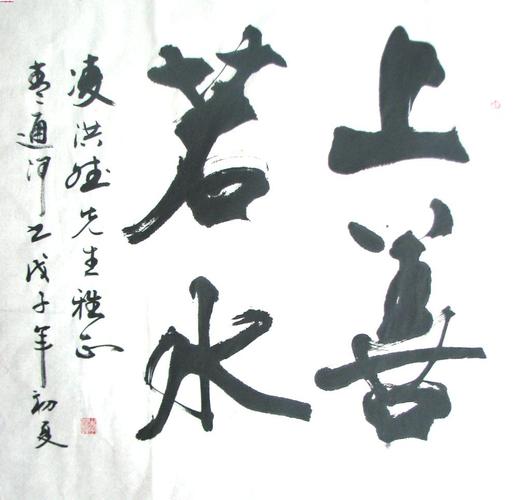 上善
若水
凌洪先生雅正
通河戊子年初夏